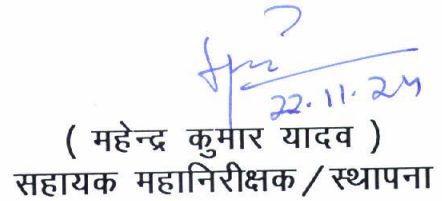 22.11.24
( महेन्द्र कुमार यादव )
सहायक महानिरीक्षक / स्थापना